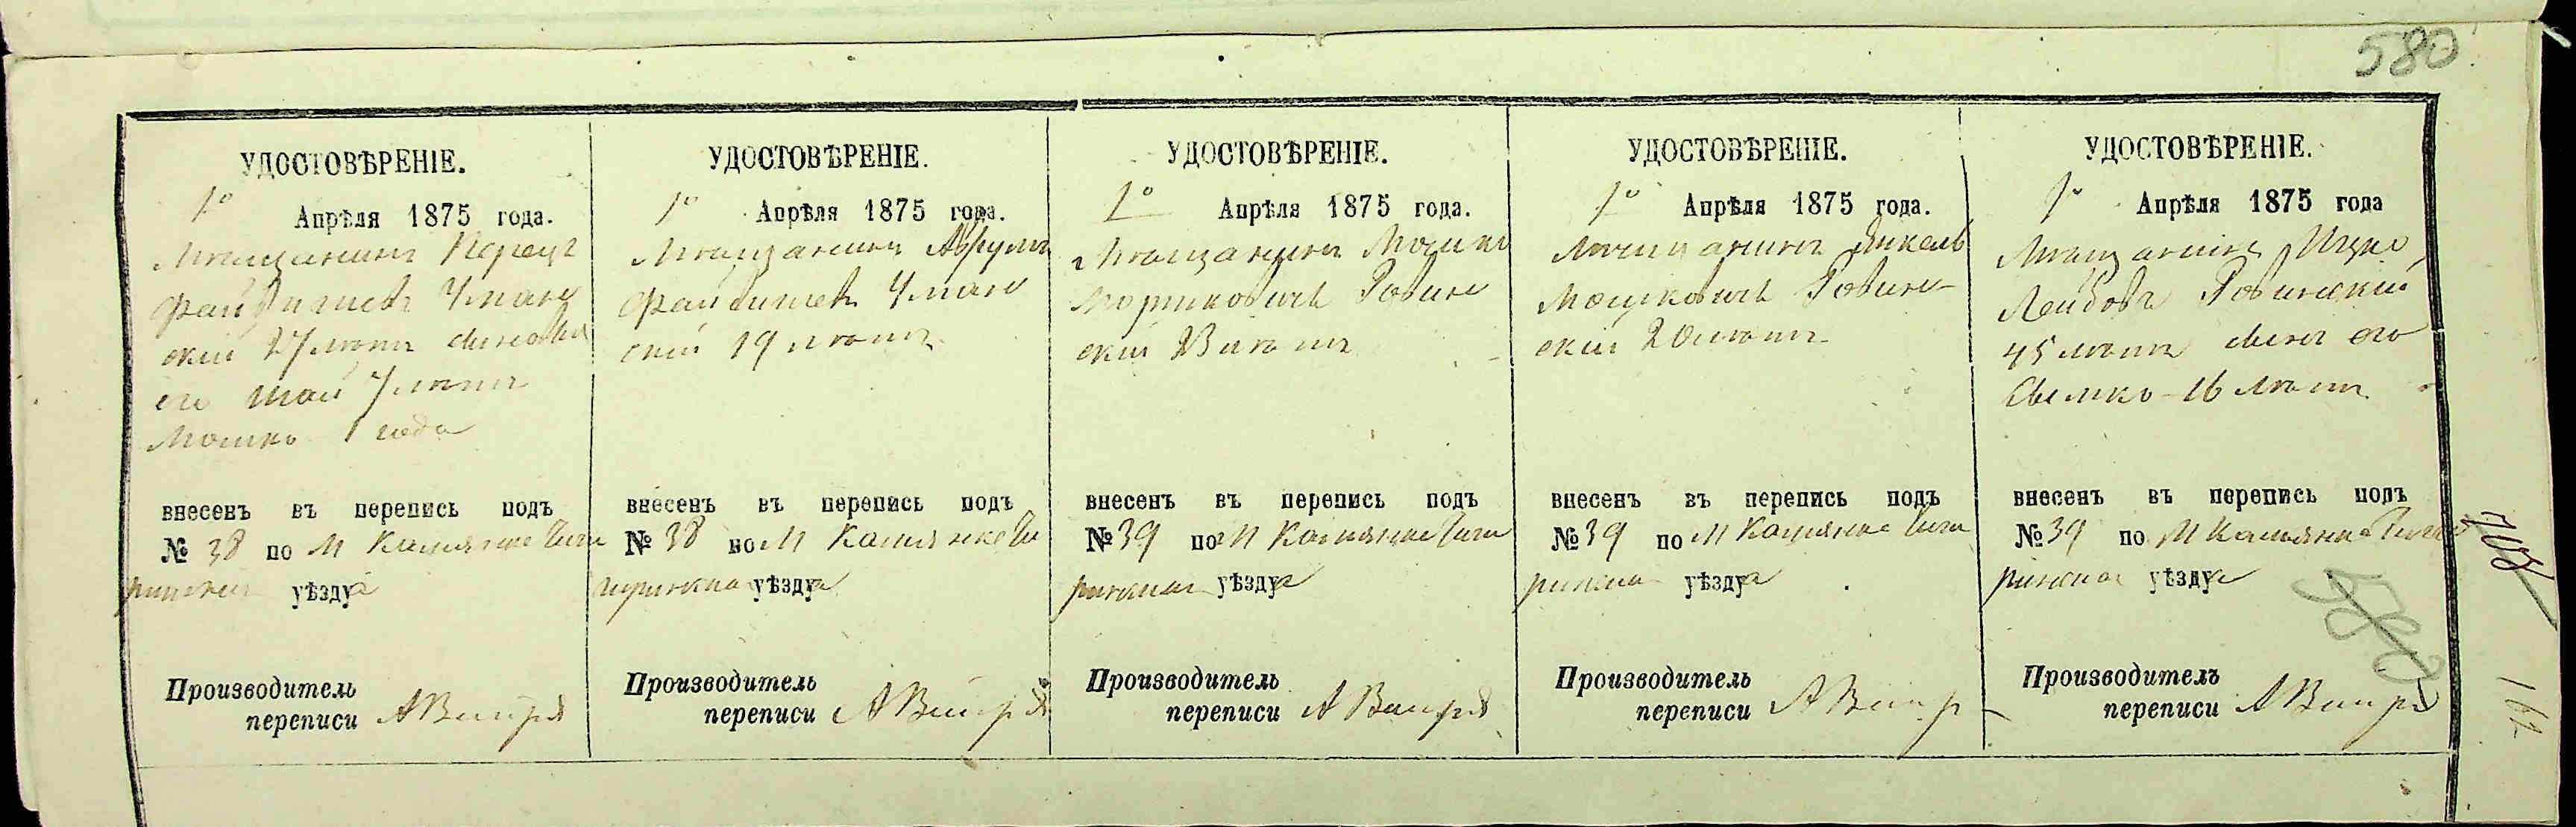 580
УДОСТОВѢРЕНІЕ.
1го Апрѣля 1875 года.
Мѣщанинъ Перецъ
Файвишевъ Уман
скій 27 лѣтъ сыновья
его Шая 7 лѣтъ
Мошко 1 года
внесенъ въ перепись подъ
№ 38 по М Камянке Чиги
ринскаго уѣзда
Производитель
переписи
УДОСТОВѢРЕНІЕ.
1го Апрѣля 1875 года.
Мѣщанинъ Аврумъ
Файвишевъ Уман
скій 19 лѣтъ
внесенъ въ перепись подъ
№ 38 по М Камянке Чи
гиринскаго уѣзда
Производитель
переписи
УДОСТОВѢРЕНІЕ.
1го Апрѣля 1875 года.
Мѣщанинъ Мошко
Ровин
скій 23 лѣтъ
внесенъ въ перепись подъ
№ 39 по М Камянке Чиги
ринскаго уѣзда
Производитель
переписи
УДОСТОВѢРЕНІЕ.
1го Апрѣля 1875 года.
Мѣщанинъ Янкель
Мошковичъ Ровин
скій 20 лѣтъ
внесенъ въ перепись подъ
№ 39 по М Камянке Чиги
ринскаго уѣзда
Производитель
переписи
УДОСТОВѢРЕНІЕ.
1го Апрѣля 1875 года
Мѣщанинъ Ицко
Лейбовъ Ровинскій
45 лѣтъ сынъ его
16 лѣтъ
внесенъ въ перепись подъ
№ 39 по М Камянке Чиги
ринскаго уѣзда
Производитель
переписи
580